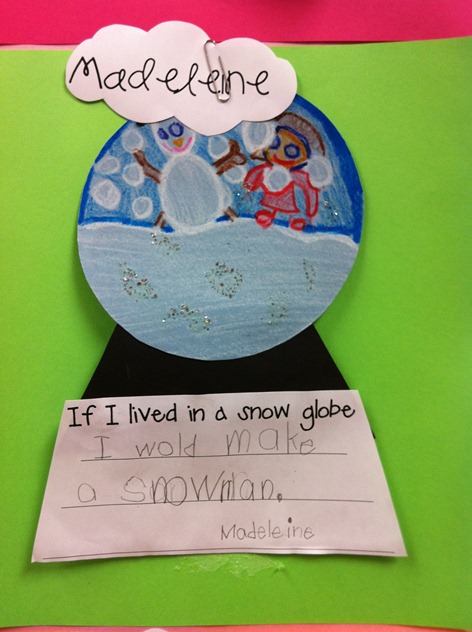 Madeleine
If I lived in a snow globe
I wold make
a snowman.
Madeleine